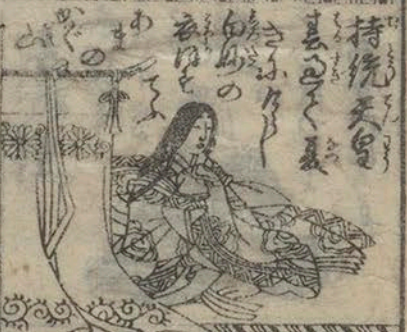 持統天皇
春過て夏
きにけらし
白妙の
衣ほす
てふ
あま
の
かぐ
山